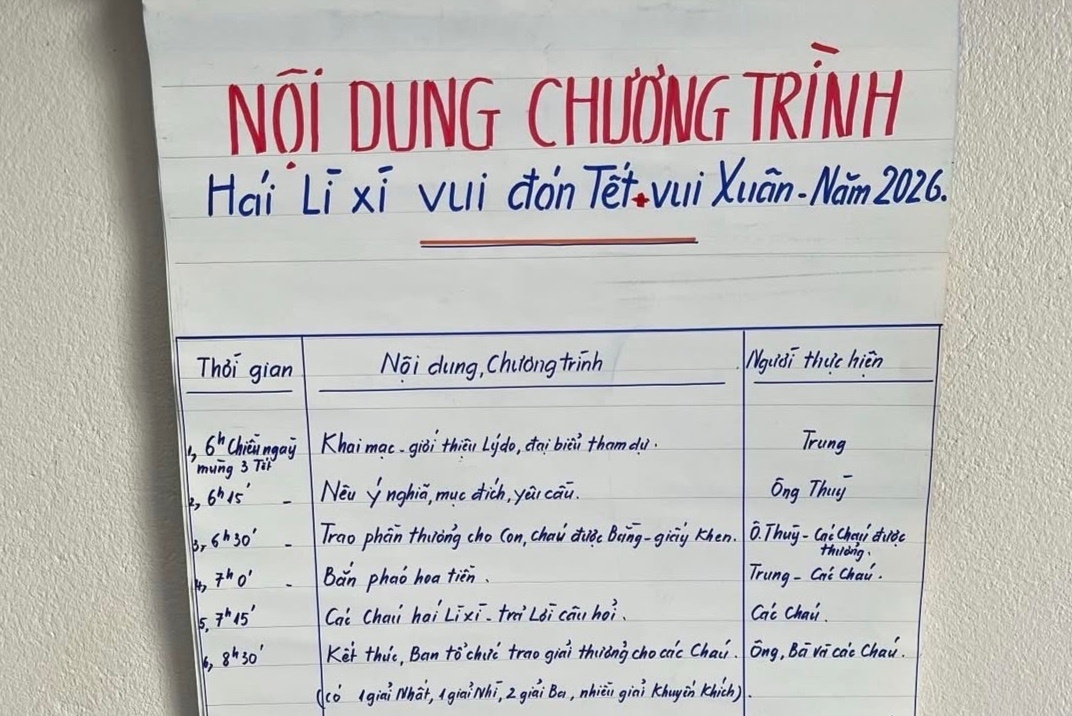 NỘI DUNG CHƯƠNG TRÌNH
Hái Lì xì vui đón Tết • vui Xuân - Năm 2026.
Thời gian | Nội dung, Chương trình | Người thực hiện
1, 6h Chiều ngày mùng 3 Tết | Khai mạc - giới thiệu Lý do, đại biểu tham dự. | Trung
2, 6h15' - | Nêu ý nghĩa, mục đích, yêu cầu. | Ông Thuỳ
3, 6h30' - | Trao phần thưởng cho Con, cháu được Bằng - giấy Khen. | Ô. Thuỳ - Các Cháu được thưởng.
4, 7h0' - | Bắn pháo hoa tiền. | Trung - Các Cháu.
5, 7h15' | Các Cháu hái Lì xì - trả Lời câu hỏi. | Các Cháu.
6, 8h30' | Kết thúc, Ban tổ chức trao giải thưởng cho các Cháu. | Ông, Bà và các Cháu.
(có 1 giải Nhất, 1 giải Nhì, 2 giải Ba, nhiều giải Khuyến Khích).